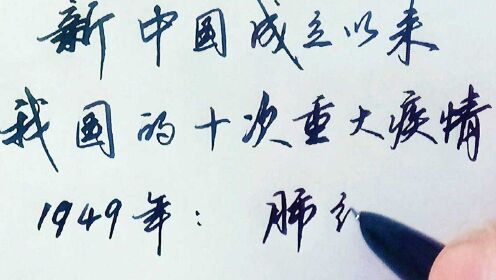 新中国成立以来
我国的十次重大疫情
1949年：肺